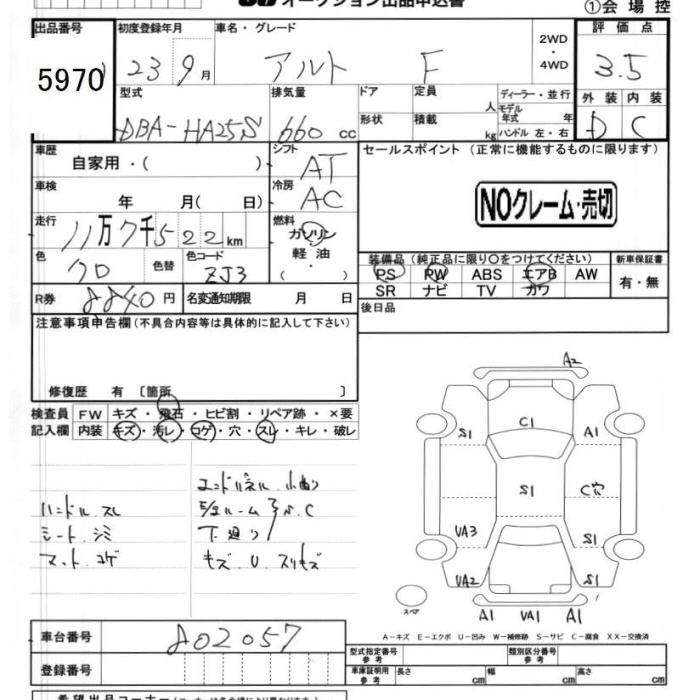 オークション出品申込書
①会場控
出品番号 初度登録年月 車名・グレード 評価点
5970 23 9月 アルト F 2WD・4WD 3.5
型式 排気量 ドア 定員 人 ディーラー・並行 外装 内装
DBA-HA25S 660 cc 形状 積載 kg モデル年式 年 ハンドル 左・右 D C
車歴 自家用・( ) シフト AT セールスポイント (正常に機能するものに限ります)
車検 年 月( 日) 冷房 AC NOクレーム・売切
走行 11万7千522km 燃料 ガソリン・軽油 ( ・ )
色 クロ 色替 色コード ZJ3
装備品(純正品に限り〇をつけてください) 新車保証書
PS PW ABS エアB AW 有・無
SR ナビ TV カワ
R券 8840円 名変通知期限 月 日 後日品
注意事項申告欄(不具合内容等は具体的に記入して下さい)
修復歴 有 〔箇所 〕
検査員 FW キズ・飛石・ヒビ割・リペア跡・×要
記入欄 内装 キズ・汚レ・コゲ・穴・スレ・キレ・破レ
エンドパネル 小曲り
ハンドル スレ
シート シミ 下廻り
マット コゲ キズ U スリキズ
A2
S1 C1 A1
S1 C穴
VA3 S1
VA2 S1
スペア A1 VA1 A1
A-キズ E-エクボ U-凹み W-補修跡 S-サビ C-腐食 XX-交換済
車台番号 802057
登録番号
型式指定番号 参考 類別区分番号 参考
車庫証明用 参考 長さ cm 幅 cm 高さ cm
希望出品コーナー